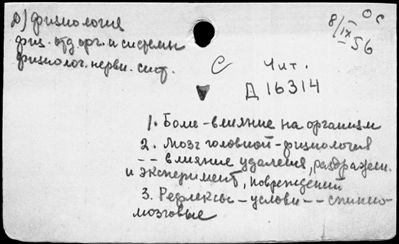 д) физиология
физ. отд. орг. и системы
физиолог. нервн. сист.
ОС
8/IX 56
С Чит.
Д 16314
1. Боль - влияние на организм
2. Мозг головной - физиология
-- влияние удаления, раздражен.
и эксперимент, повреждений
3. Рефлексы - услови -- спинно-
мозговые